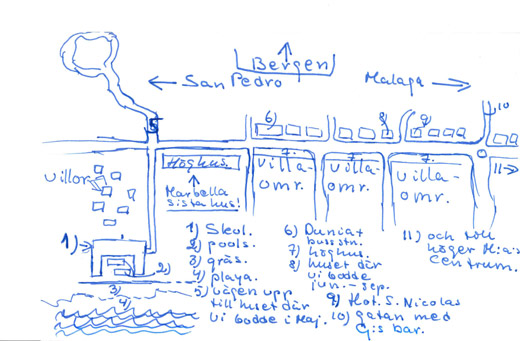 Bergen
← San Pedro
Malaga →
10
5
6)
8)
9)
Höghus.
7.
villa-
omr.
7.
villa-
omr.
7.
villa-
omr.
11) →
villor
Marbella
sista hus!
1)
2)
3)
4)
1) Skol.
2) pools.
3) gräs.
4) playa.
5) vägen upp
till huset där
vi bodde i Maj.
6) Dunia +
busstn.
7) höghus.
8) huset där
vi bodde
jun. - sep.
9) Hot. S. Nicolas
10) gatan med
G:s bar.
11) och till
höger
centrum.